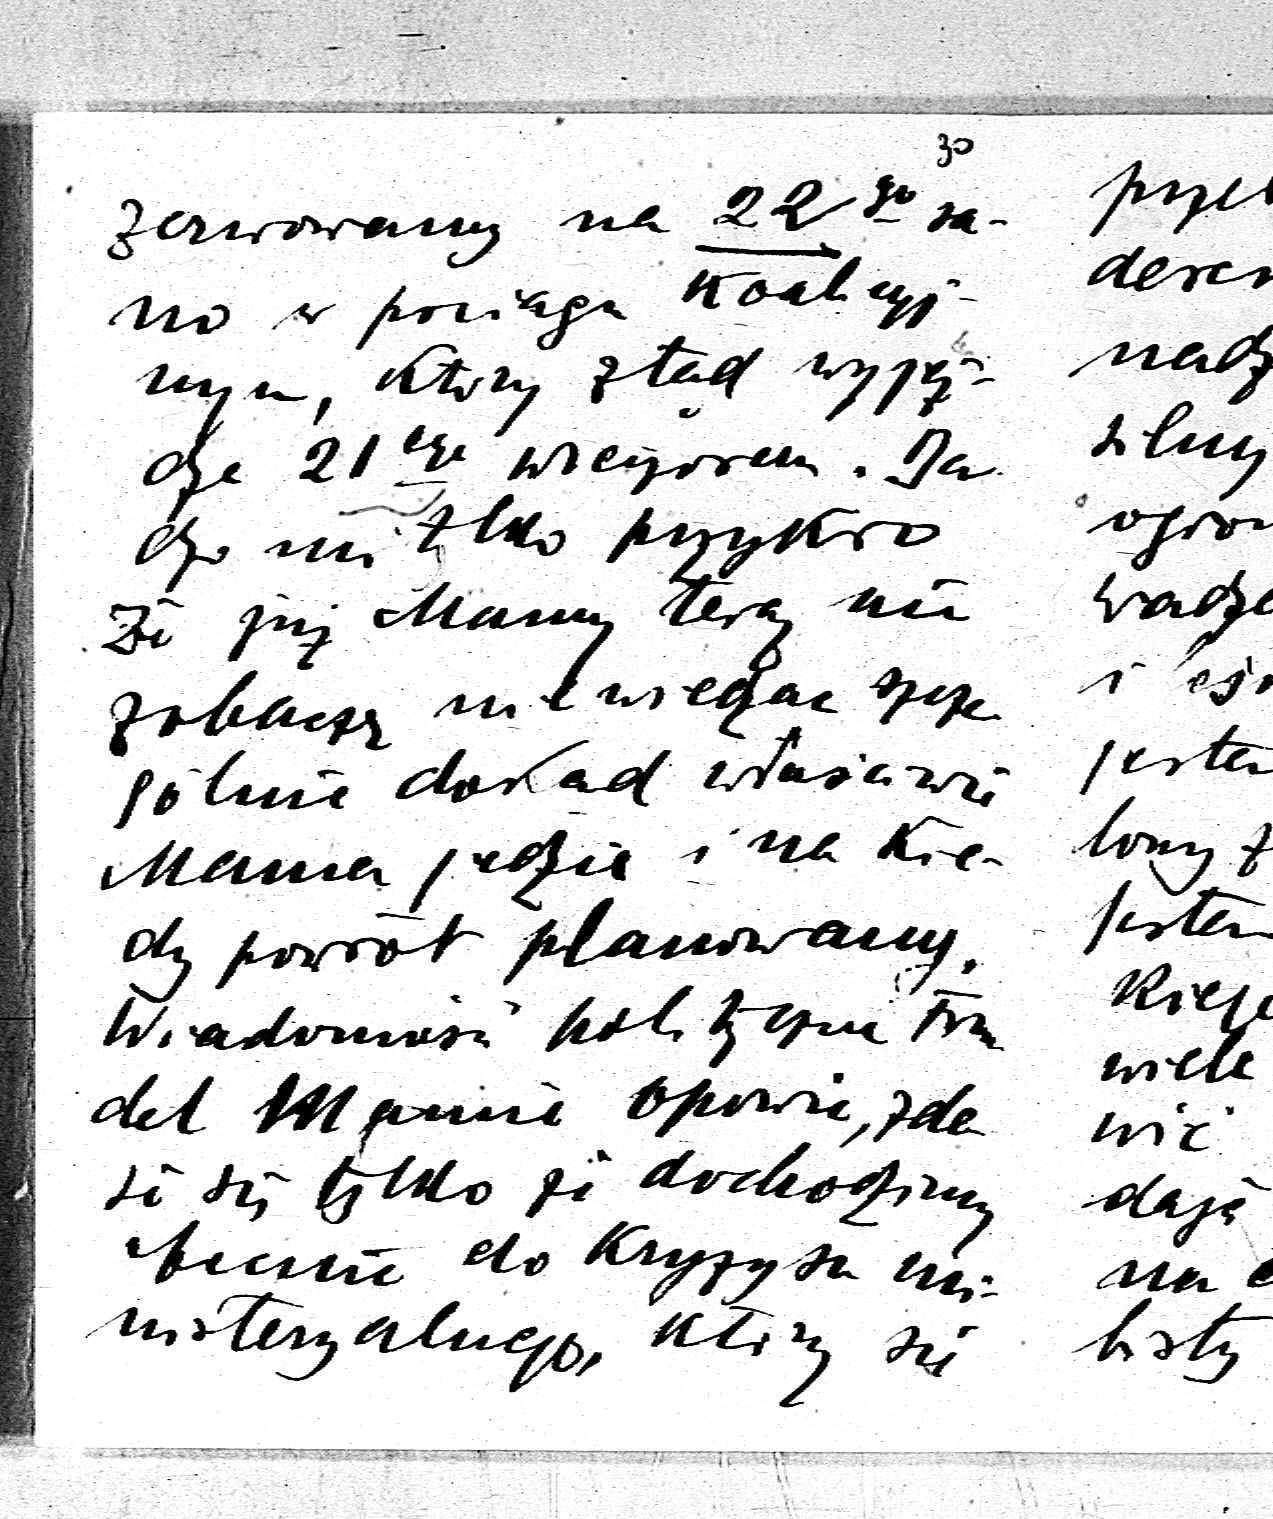 30
zerwowany na 22go ra-
no w pociągu koalicyj-
nym, który ztąd wyjeż-
dża 21ego wieczorem. Ba
dzo mi tylko przykro
że już Mamy teraz nie
zobaczę nie wiedząc szcze
gólnie dokąd właściwie
Mama jedzie i na kie-
dy powrót planowany.
Wiadomości polityczne
del Mamie opowie, zda
je się tylko że dochodzimy
obecnie do kryzysu mi-
nisteryalnego, który się
przed
nadz
silny
wadze
i
jestem
lony z
jestem
wiele
wić
dają
na
listy